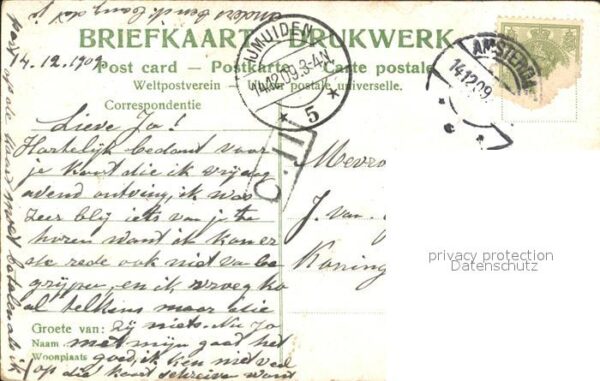 BRIEFKAART DRUKWERK
Post card — Postkarte — Carte postale
Weltpostverein postale universelle.
Correspondentie
14.12.1909
IJMUIDEN
14.12.09.3-4N
5
AMSTERDAM
14.12.09
C.11
Lieve Jo!
Hartelijk bedankt voor
je kaart die ik vrijdag
avond ontving, ik was
zeer blij iets van je te
hooren want ik kon er
de rede ook niet van be
grijpen, en ik vroeg ko
al telkens maar die
Groete van: zij niets. Nu Jo
Naam met mijn gaad het
Woonplaats goed, ik ken niet veel
op die kaart schreive want
Mevro
J. van
Koning
privacy protection
Datenschutz